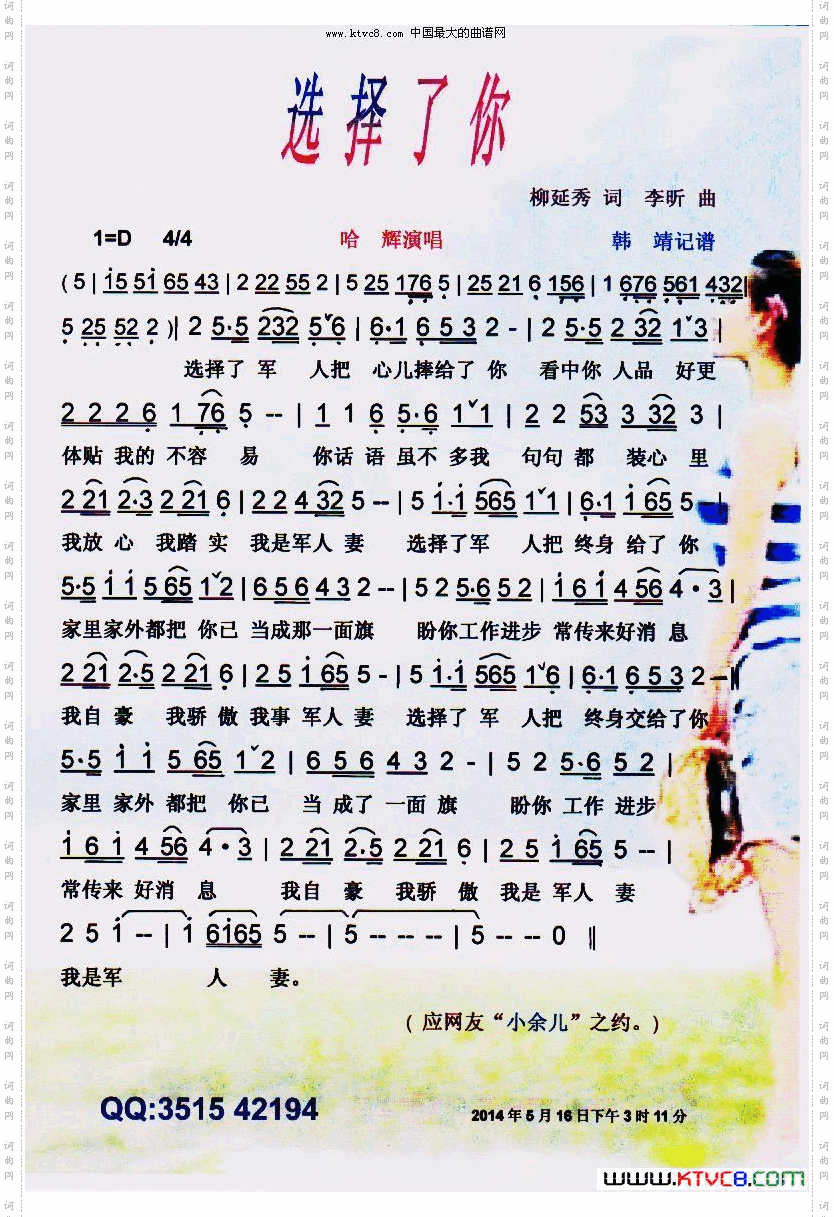 www.ktvc8.com 中国最大的曲谱网
选择了你
柳延秀 词 李昕 曲
1=D 4/4 哈 辉演唱 韩 靖记谱
(5|15 51 65 43|2 22 55 2|5 25 176 5|25 21 6 156|1 676 561 432|
5 25 52 2)|2 5·5 232 5ˇ6|6·1 6 5 3 2 -|2 5·5 2 32 1ˇ3|
选择了 军 人把 心儿捧给了 你 看中你 人品 好更
2 2 2 6 1 76 5 --|1 1 6 5·6 1ˇ1|2 2 53 3 32 3|
体贴 我的 不容 易 你话 语 虽不 多我 句句 都 装心 里
2 21 2·3 2 21 6|2 2 4 32 5 --|5 1·1 565 1ˇ1|6·1 1 65 5 -|
我放 心 我踏 实 我是军人 妻 选择了军 人把 终身 给了 你
5·5 1 1 5 65 1ˇ2|6 5 6 4 3 2 --|5 2 5·6 5 2|1 6 1 4 56 4·3|
家里家外都把 你已 当成那一面旗 盼你工作进步 常传来好消 息
2 21 2·5 2 21 6|2 5 1 65 5 -|5 1·1 565 1ˇ6|6·1 6 5 3 2 --‖
我自 豪 我骄 傲 我事 军人 妻 选择了 军 人把 终身交给了你
5·5 1 1 5 65 1ˇ2|6 5 6 4 3 2 -|5 2 5·6 5 2|
家里 家外 都把 你已 当 成了 一面 旗 盼你 工作 进步
1 6 1 4 56 4·3|2 21 2·5 2 21 6|2 5 1 65 5 --|
常传来 好消 息 我自 豪 我骄 傲 我是 军人 妻
2 5 1 --|1 6165 5 --|5 -- --|5 -- 0‖
我是军 人 妻。
(应网友“小余儿”之约。)
QQ:3515 42194
2014年5月16日下午3时11分
www.KTVC8.com
词曲网